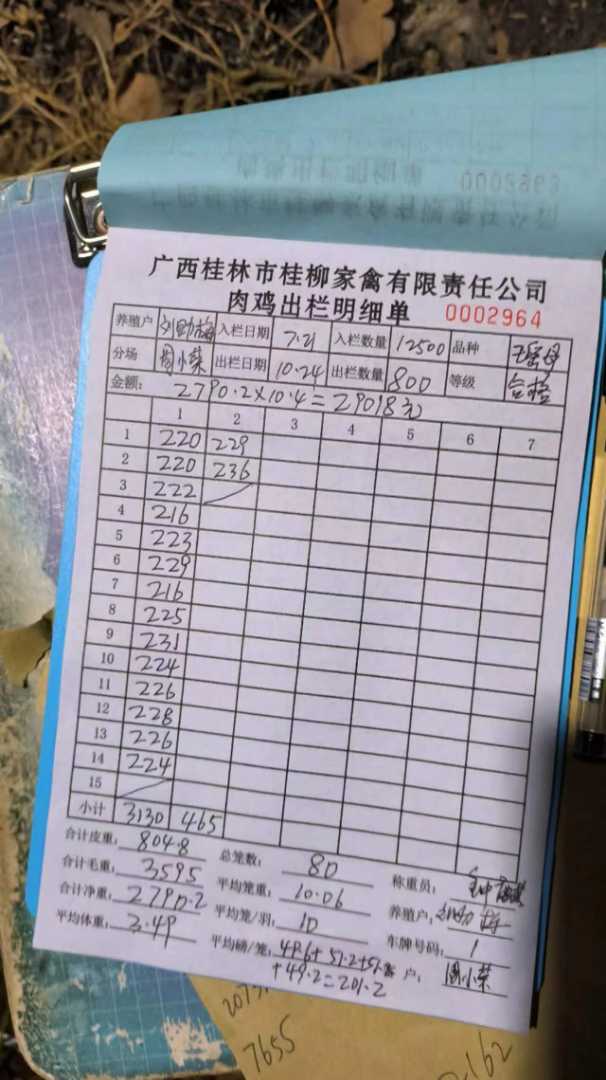 广西桂林市桂柳家禽有限责任公司
肉鸡出栏明细单 0002964
养殖户 刘助梅 入栏日期 7.21 入栏数量 12500 品种
分场 周小荣 出栏日期 10.24 出栏数量 800 等级 合格
金额: 2790.2×10.4=29018元
1 2 3 4 5 6 7
1 220 229
2 220 236
3 222
4 216
5 223
6 229
7 216
8 225
9 231
10 224
11 226
12 228
13 226
14 224
15
小计 3130 465
合计皮重: 804.8 总笼数: 80 称重员:
合计毛重: 3595 平均笼重: 10.06 养殖户:
合计净重: 2790.2 平均笼/羽: 10 车牌号码: 1
平均体重: 3.49 平均磅/笼: 49.6+51.2+51.2 客 户: 周小荣
+49.2=201.2
7655